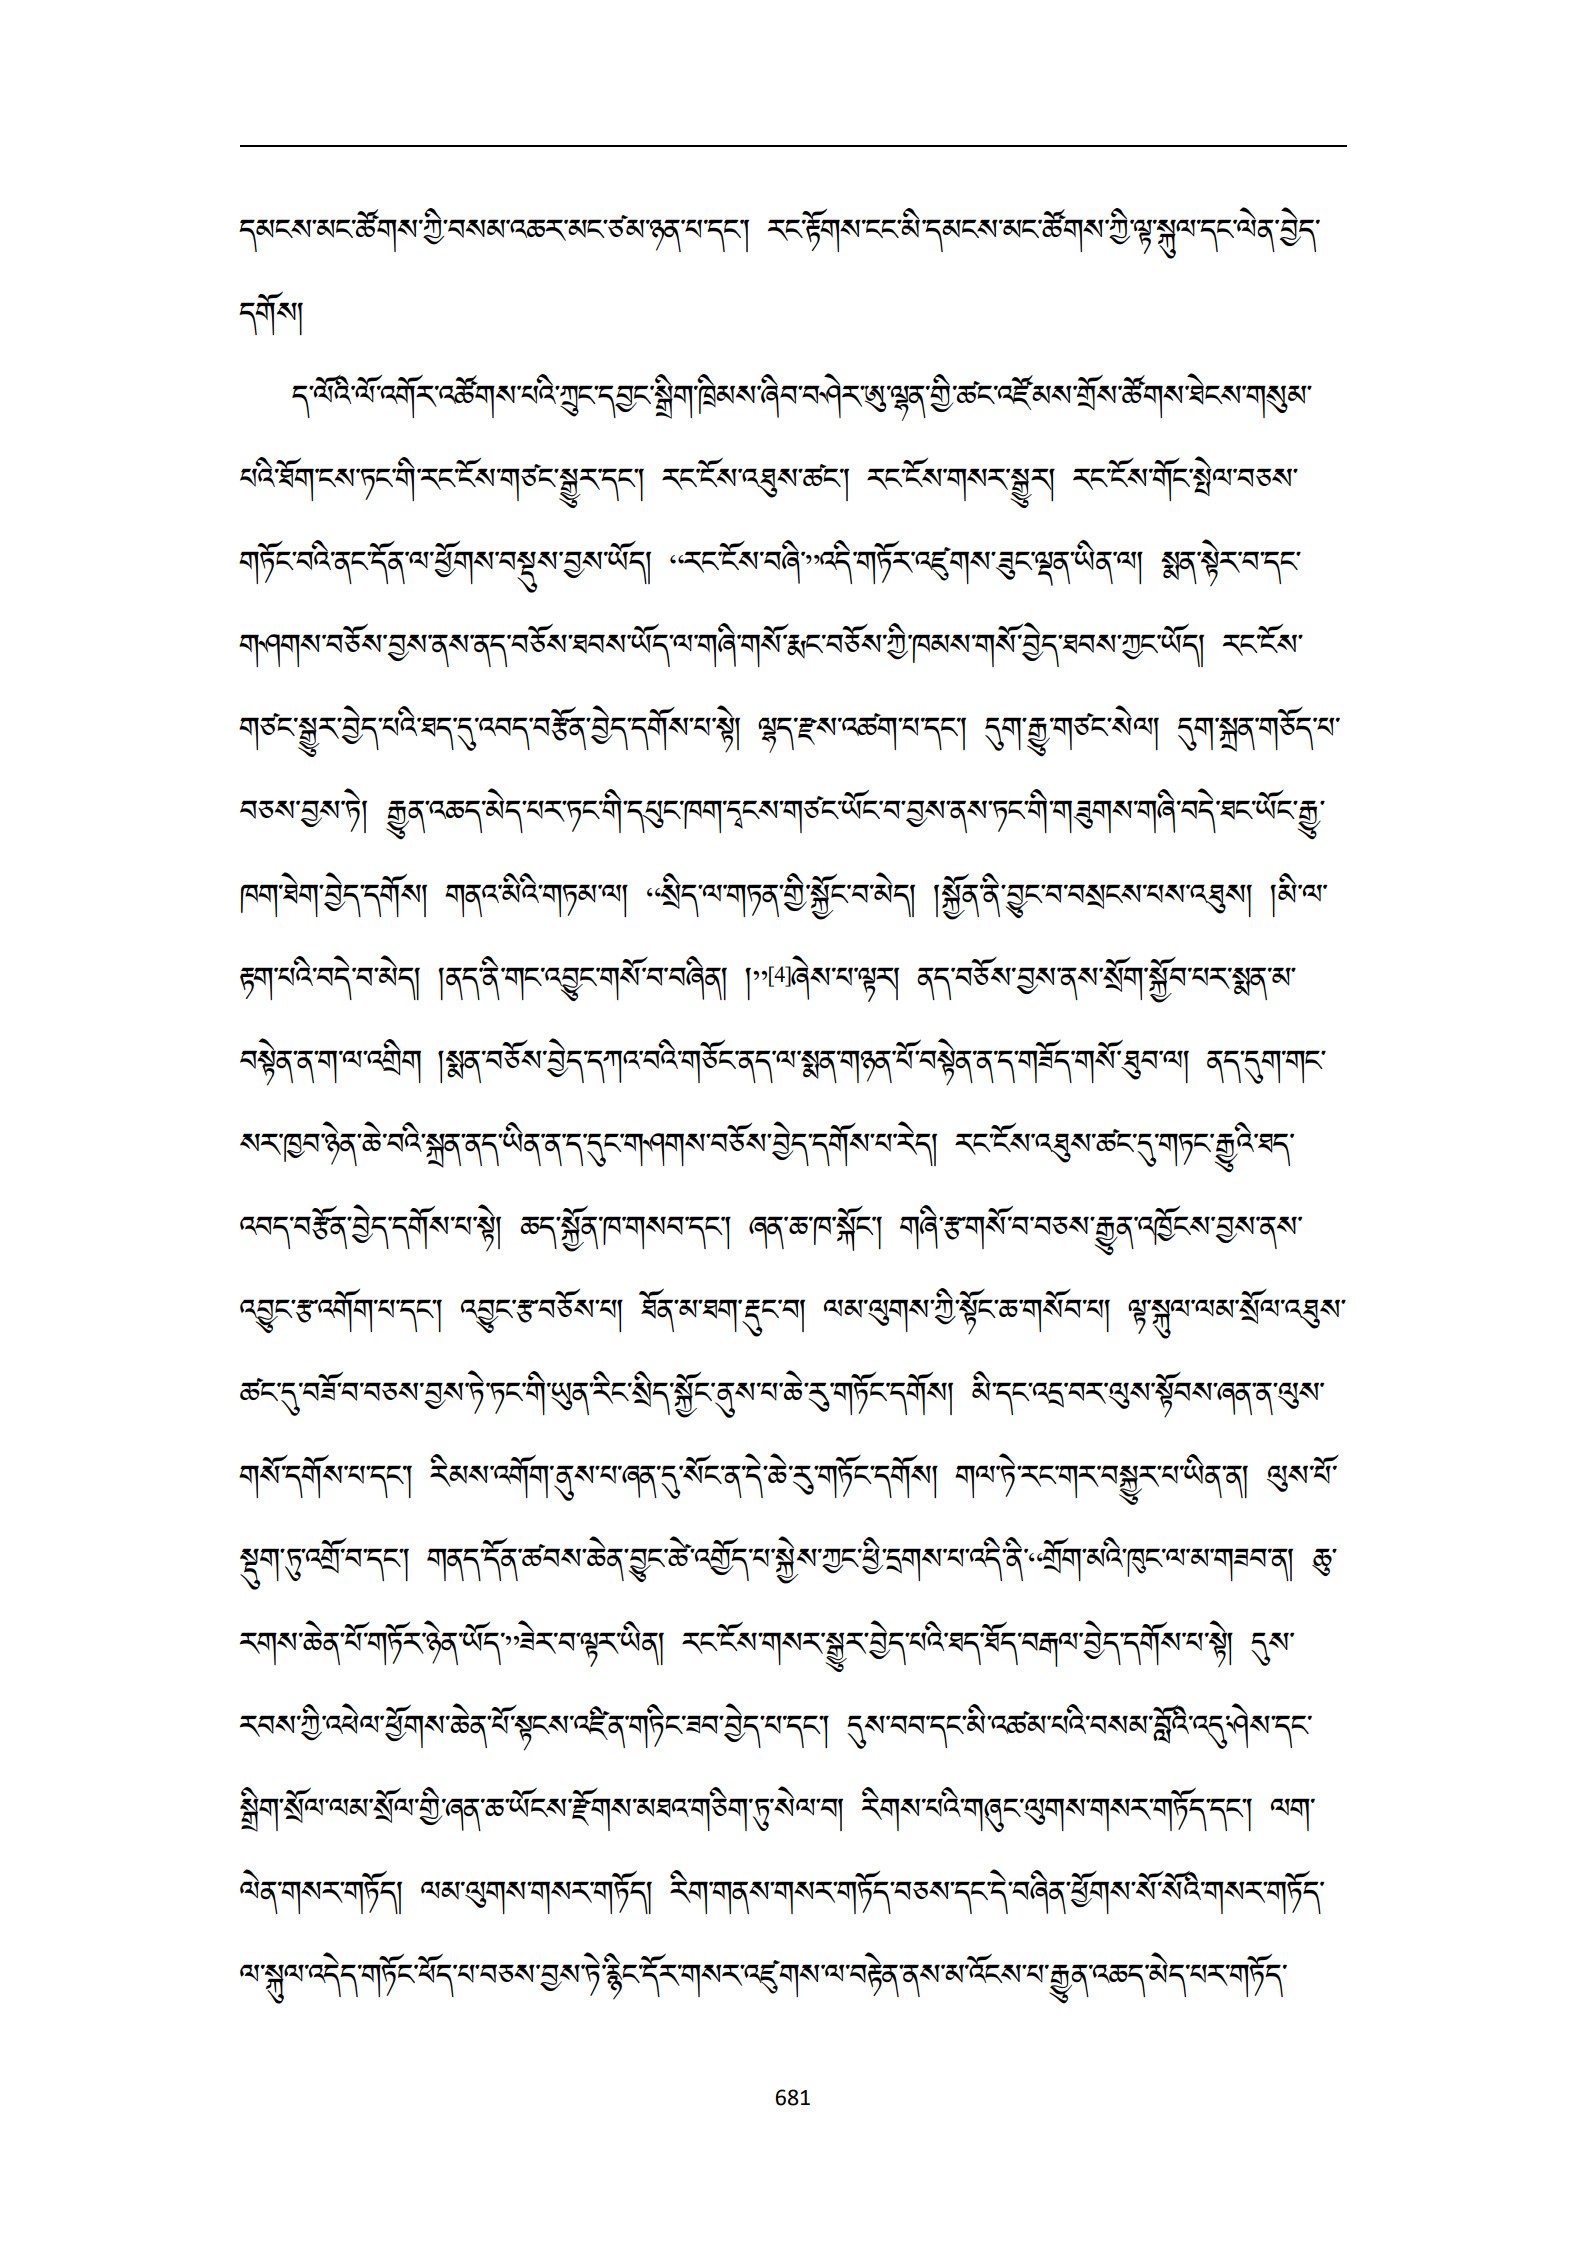 དམངས་མང་ཚོགས་ཀྱི་བསམ་འཆར་མང་ཙམ་ཉན་པ་དང༌། རང་རྟོགས་ངང་མི་དམངས་མང་ཚོགས་ཀྱི་ལྟ་སྐུལ་དང་ལེན་བྱེད་
དགོས།
ད་ལོའི་ལོ་འགོར་འཚོགས་པའི་ཀྲུང་དབྱང་སྒྲིག་ཁྲིམས་ཞིབ་བཤེར་ཨུ་ལྷན་གྱི་ཚང་འཛོམས་གྲོས་ཚོགས་ཐེངས་གསུམ་
པའི་ཐོག་ངས་ཏང་གི་རང་ངོས་གཙང་སྒྱུར་དང༌། རང་ངོས་འཐུས་ཚང༌། རང་ངོས་གསར་སྒྱུར། རང་ངོས་གོང་སྤེལ་བཅས་
གཏོང་བའི་ནང་དོན་ལ་ཕྱོགས་བསྡུས་བྱས་ཡོད། “རང་ངོས་བཞི་”འདི་གཏོར་འཛུགས་ཟུང་ལྡན་ཡིན་ལ། སྨན་སྟེར་བ་དང་
གཤགས་བཅོས་བྱས་ནས་ནད་བཅོས་ཐབས་ཡོད་ལ་གཞི་གསོ་རྨང་བཅོས་ཀྱི་ཁམས་གསོ་བྱེད་ཐབས་ཀྱང་ཡོད། རང་ངོས་
གཙང་སྒྱུར་བྱེད་པའི་ཐད་དུ་འབད་བརྩོན་བྱེད་དགོས་པ་སྟེ། ལྷད་རྫས་འཚག་པ་དང༌། དུག་རྒྱུ་གཙང་སེལ། དུག་སྐྲན་གཅོད་པ་
བཅས་བྱས་ཏེ། རྒྱུན་འཆད་མེད་པར་ཏང་གི་དཔུང་ཁག་དྭངས་གཙང་ཡོང་བ་བྱས་ནས་ཏང་གི་གཟུགས་གཞི་བདེ་ཐང་ཡོང་རྒྱུ་
ཁག་ཐེག་བྱེད་དགོས། གནའ་མིའི་གཏམ་ལ། “སྲིད་ལ་གཏན་གྱི་སྐྱོང་བ་མེད། །སྐྱོན་ནི་བྱུང་བ་བསྲངས་པས་འཐུས། །མི་ལ་
རྟག་པའི་བདེ་བ་མེད། །ནད་ནི་གང་འབྱུང་གསོ་བ་བཞིན། །”[4]ཞེས་པ་ལྟར། ནད་བཅོས་བྱས་ནས་སྲོག་སྐྱོབ་པར་སྨན་མ་
བསྟེན་ན་ག་ལ་འགྲིག །སྨན་བཅོས་བྱེད་དཀའ་བའི་གཅོང་ནད་ལ་སྨན་གཉན་པོ་བསྟེན་ན་ད་གཟོད་གསོ་ཐུབ་ལ། ནད་དུག་གང་
སར་ཁྱབ་ཉེན་ཆེ་བའི་སྐྲན་ནད་ཡིན་ན་ད་དུང་གཤགས་བཅོས་བྱེད་དགོས་པ་རེད། རང་ངོས་འཐུས་ཚང་དུ་གཏང་རྒྱུའི་ཐད་
འབད་བརྩོན་བྱེད་དགོས་པ་སྟེ། ཆད་སྐྱོན་ཁ་གསབ་དང༌། ཞན་ཆ་ཁ་སྐོང༌། གཞི་རྩ་གསོ་བ་བཅས་རྒྱུན་འཁྱོངས་བྱས་ནས་
འབྱུང་རྩ་འགོག་པ་དང༌། འབྱུང་རྩ་བཅོས་པ། ཐོན་མ་ཐག་རྡུང་བ། ལམ་ལུགས་ཀྱི་སྟོང་ཆ་གསོབ་པ། ལྟ་སྐུལ་ལམ་སྲོལ་འཐུས་
ཚང་དུ་བཟོ་བ་བཅས་བྱས་ཏེ་ཏང་གི་ཡུན་རིང་སྲིད་སྐྱོང་ནུས་པ་ཆེ་རུ་གཏོང་དགོས། མི་དང་འདྲ་བར་ལུས་སྟོབས་ཞན་ན་ལུས་
གསོ་དགོས་པ་དང༌། རིམས་འགོག་ནུས་པ་ཞན་དུ་སོང་ན་དེ་ཆེ་རུ་གཏོང་དགོས། གལ་ཏེ་རང་གར་བསྐྱུར་པ་ཡིན་ན། ལུས་པོ་
སྡུག་ཏུ་འགྲོ་བ་དང༌། གནད་དོན་ཚབས་ཆེན་བྱུང་ཚེ་འགྱོད་པ་སྐྱེས་ཀྱང་ཕྱི་དྲགས་པ་འདི་ནི་“གྲོག་མའི་ཁུང་ལ་མ་གཟབ་ན། ཆུ་
རགས་ཆེན་པོ་གཏོར་ཉེན་ཡོད་”ཟེར་བ་ལྟར་ཡིན། རང་ངོས་གསར་སྒྱུར་བྱེད་པའི་ཐད་ཐོད་བརྒལ་བྱེད་དགོས་པ་སྟེ། དུས་
རབས་ཀྱི་འཕེལ་ཕྱོགས་ཆེན་པོ་སྟངས་འཛིན་གཏིང་ཟབ་བྱེད་པ་དང༌། དུས་བབ་དང་མི་འཚམ་པའི་བསམ་བློའི་འདུ་ཤེས་དང་
སྒྲིག་སྲོལ་ལམ་སྲོལ་གྱི་ཞན་ཆ་ཡོངས་རྫོགས་མཐའ་གཅིག་ཏུ་སེལ་བ། རིགས་པའི་གཞུང་ལུགས་གསར་གཏོད་དང༌། ལག་
ལེན་གསར་གཏོད། ལམ་ལུགས་གསར་གཏོད། རིག་གནས་གསར་གཏོད་བཅས་དང་དེ་བཞིན་ཕྱོགས་སོ་སོའི་གསར་གཏོད་
ལ་སྐུལ་འདེད་གཏོང་ཕོད་པ་བཅས་བྱས་ཏེ་རྙིང་དོར་གསར་འཛུགས་ལ་བརྟེན་ནས་མ་འོངས་པ་རྒྱུན་འཆད་མེད་པར་གཏོད་
681